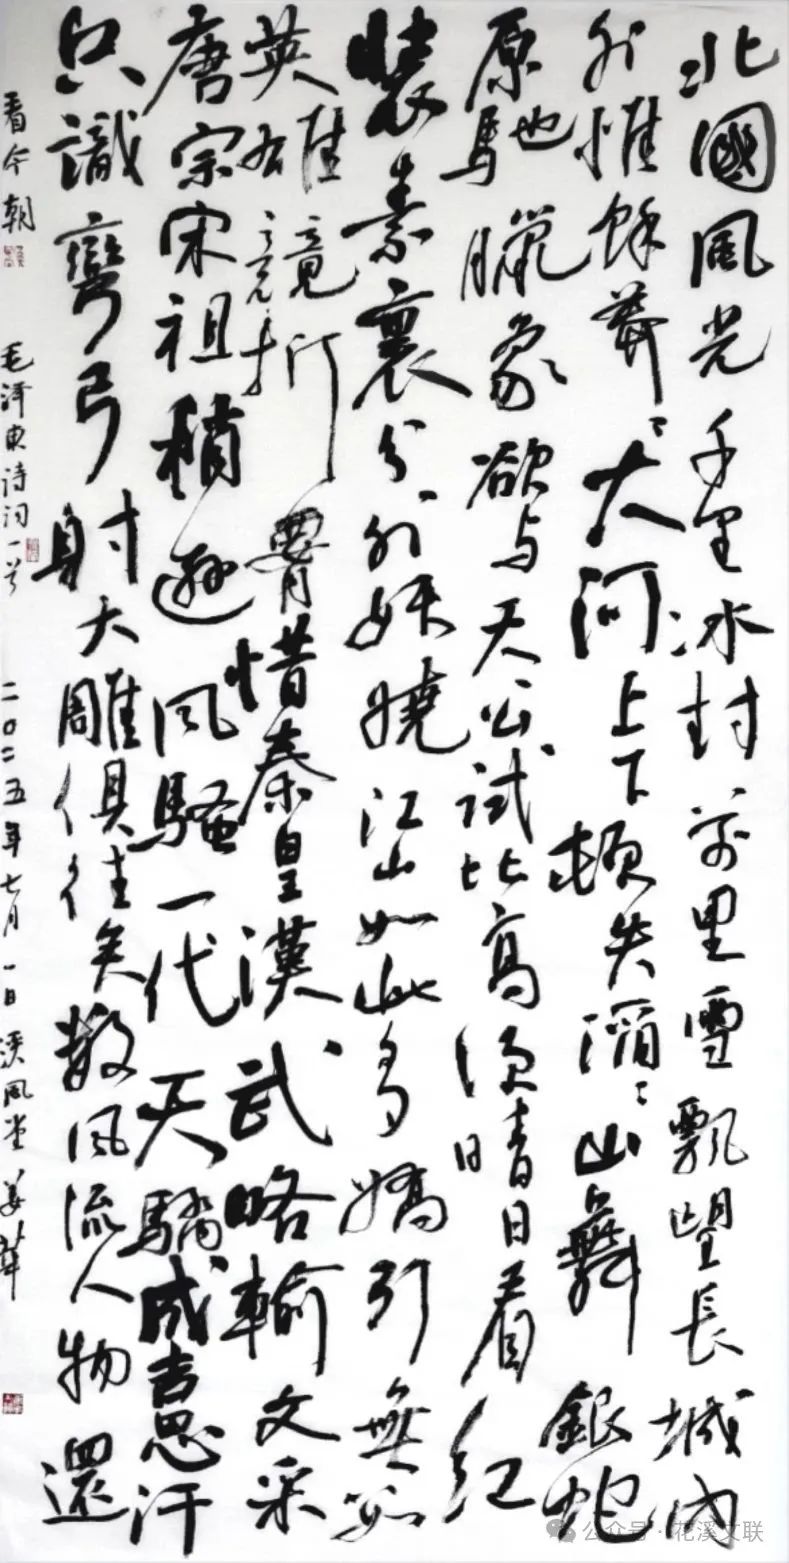 北國風光千里冰封万里雪飄望長城内
外惟餘莽〻大河上下頓失滔〻山舞銀蛇
原馳臘象欲与天公試比高須晴日看紅
裝素裹分外妖嬈江山如此多嬌引無數
英雄競折腰惜秦皇漢武略輸文采
唐宗宋祖稍遜風騷一代天驕成吉思汗
只識彎弓射大雕俱往矣數風流人物還
看今朝 毛泽東詩詞一首 二〇二五年七月一日 溪風堂 姜華
公众号 · 花溪文联